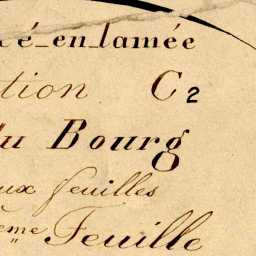 cé-en-lamée
ction C2
du Bourg
ux feuilles
ème Feuille